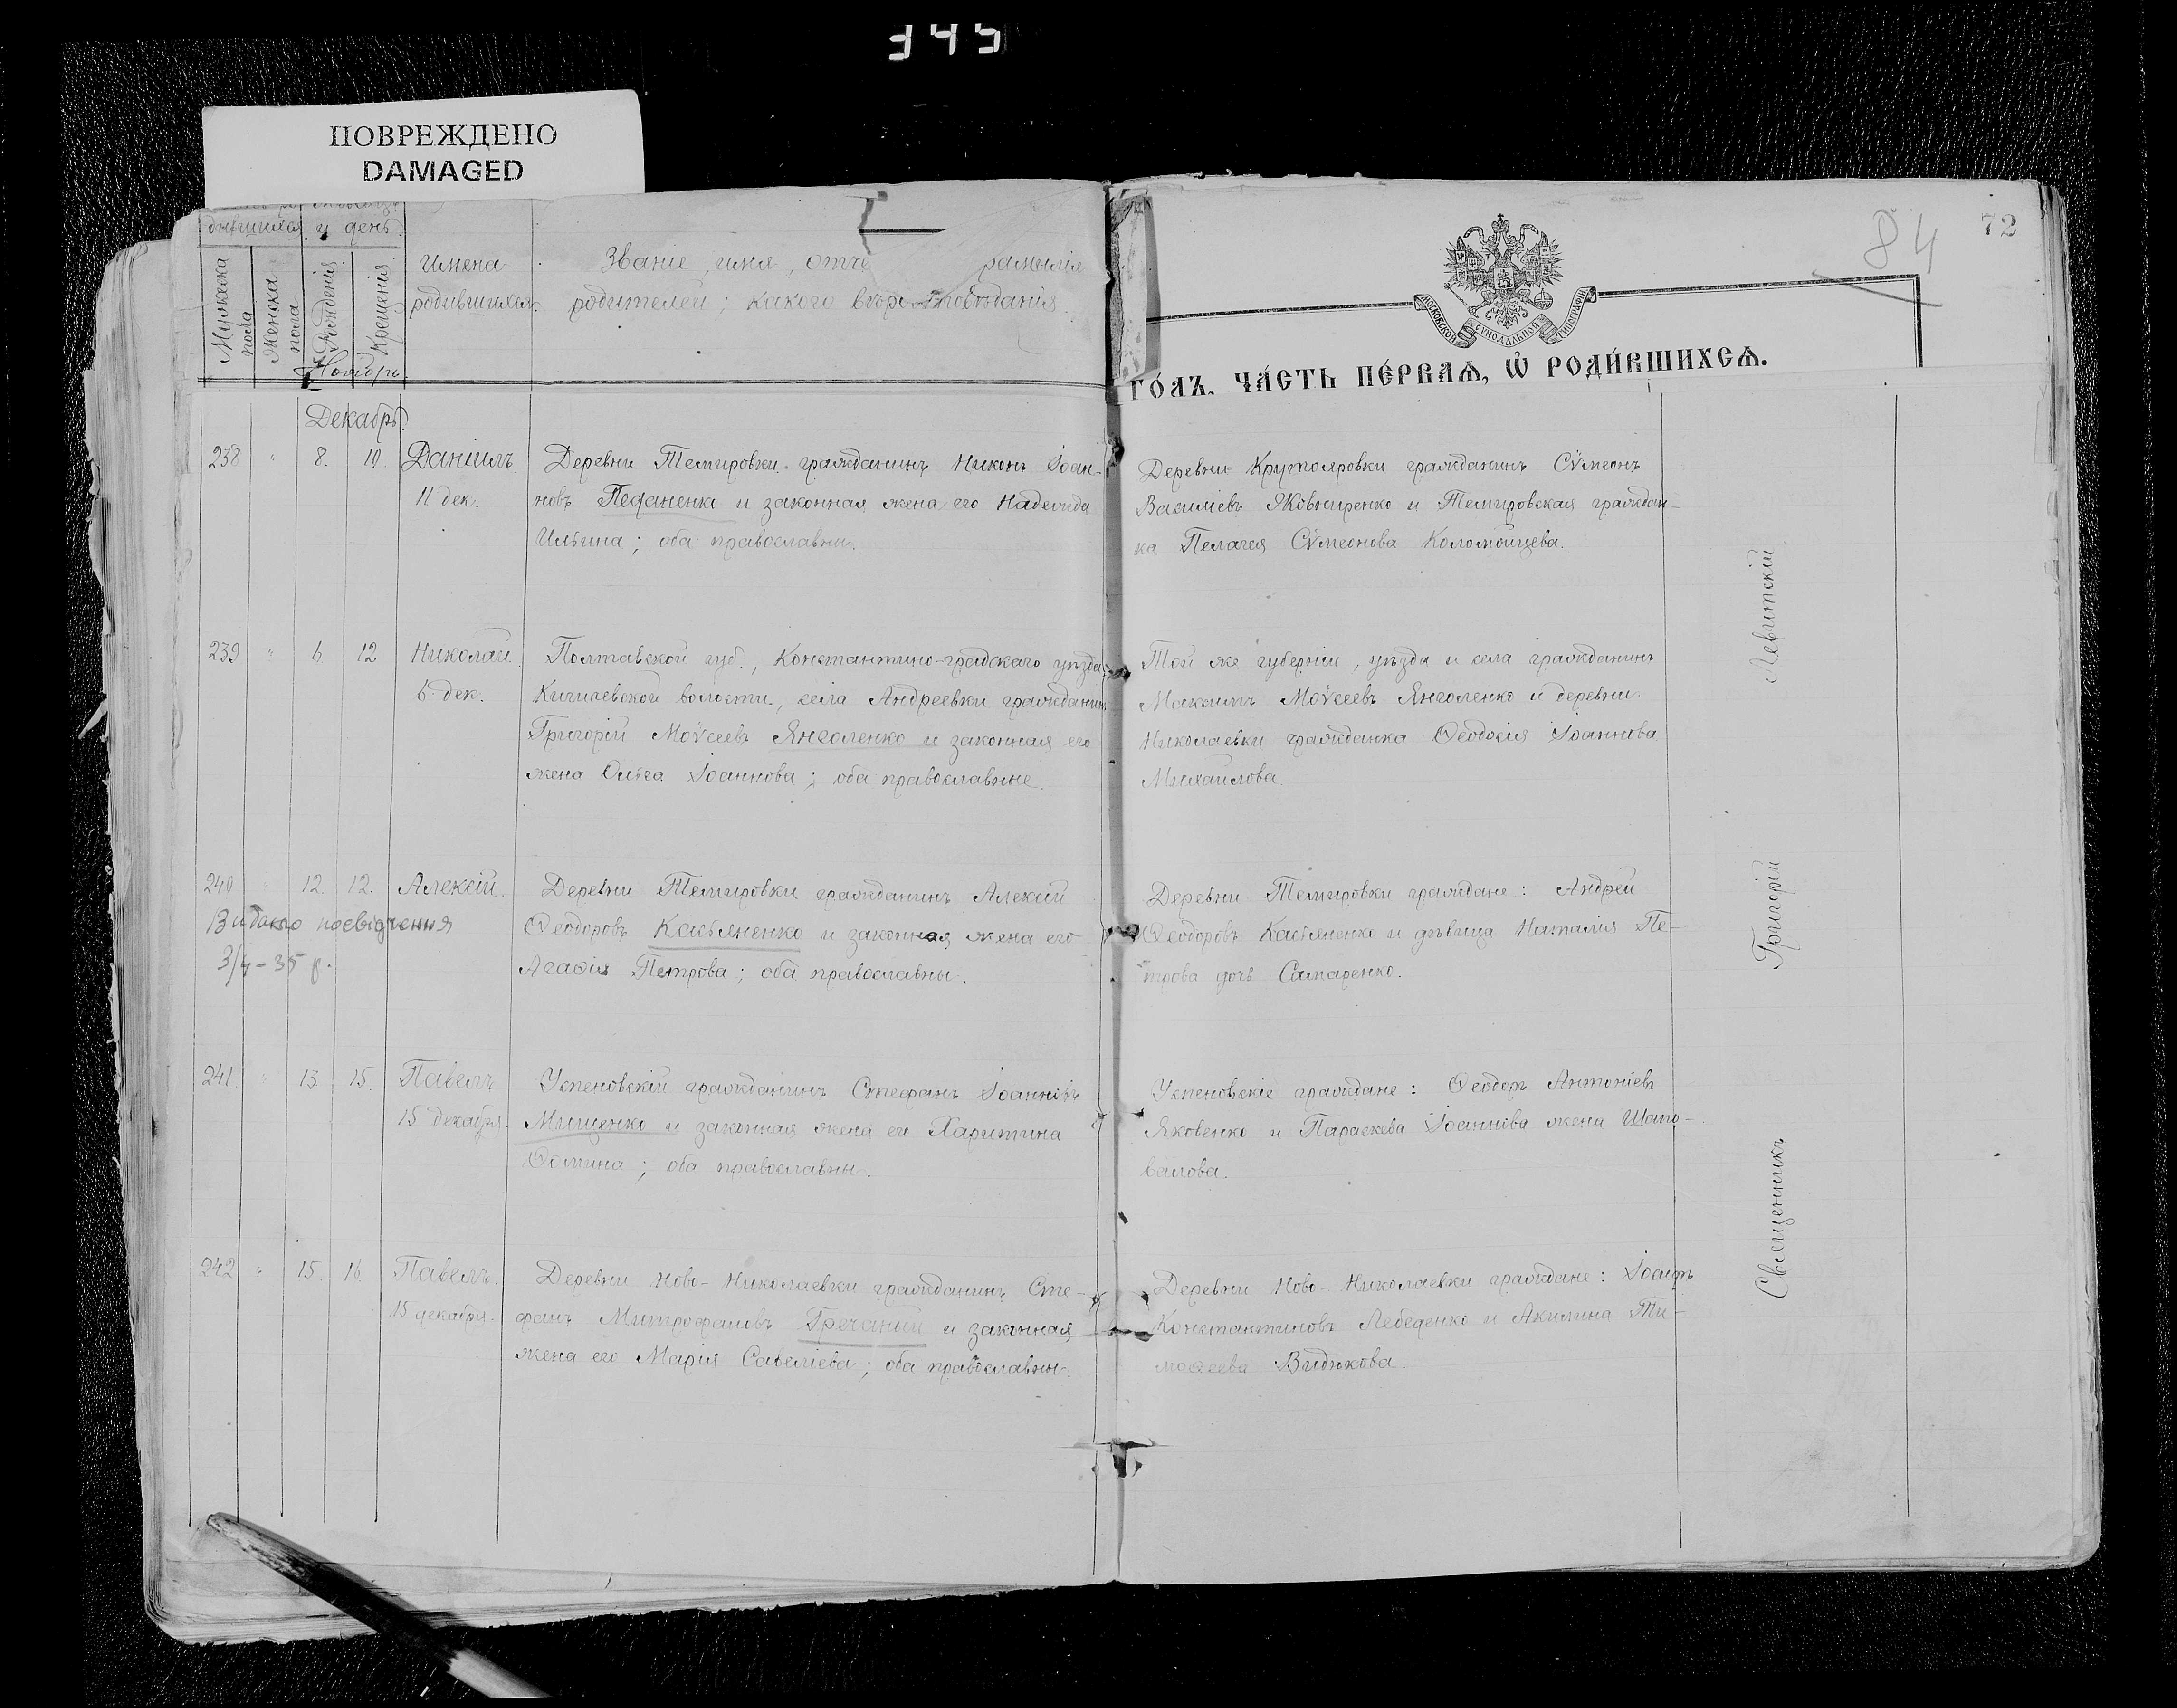 345
ПОВРЕЖДЕНО
DAMAGED
дившихся и день
Мужеска пола
Женска пола
Рожденія
Крещенія
Ноябрь.
имена
родившихся.
Званіе, имя, отче фамилія
родителей; какого вѣроисповѣданія.
84
72
МОСКОВСКОЙ СѴНОДАЛЬНОЙ ТИПОГРАФІИ
ГО́ДЪ. ЧА́СТЬ ПЕ́РВАЯ, Ѡ҆ РОДИ́ВШИХСЯ.
Декабрь.
238 " 8. 10. Даніилъ.
11 дек.
Деревни Темировки гражданинъ Никонъ Іоан-
новъ Педаненко и законная жена его Надежда
Ильина; оба православны.
Деревни Крутояровки гражданинъ Сѵмеонъ
Василіевъ Жовниренко и Темировская граждан-
ка Пелагея Сѵмеонова Коломойцева.
239 " 6. 12 Николай.
6 дек.
Полтавской губ., Константино-градскаго уѣзда,
Кигичевской волости, села Андреевки гражданинъ
Григорій Моѵсеевъ Янголенко и законная его
жена Ольга Іоаннова; оба православные.
Той же губерніи, уѣзда и села гражданинъ
Максимъ Моѵсеевъ Янголенко и деревни
Николаевки гражданка Ѳеодосія Іоаннова
Михайлова.
240 " 12. 12. Алексій.
Видано посвідчення
3/4-35 р.
Деревни Темировки гражданинъ Алексій
Ѳеодоровъ Касьяненко и законная жена его
Агаѳія Петрова; оба православны.
Деревни Темировки граждане: Андрей
Ѳеодоровъ Касьяненко и дѣвица Наталія Пе-
трова дочь Самаренко.
241. " 13 15. Павелъ
15 декабря.
Успеновскій гражданинъ Стефанъ Іоанновъ
Мищенко и законная жена его Харитина
Ѳомина; оба православны.
Успеновскіе граждане: Ѳеодоръ Антоніевъ
Яковенко и Параскева Іоаннова жена Шапо-
валова.
242 " 15. 16. Павелъ.
15 декабря.
Деревни Ново-Николаевки гражданинъ Сте-
фанъ Митрофановъ Гречаный и законная
жена его Марія Савеліева; оба православны.
Деревни Ново-Николаевки граждане: Іосифъ
Константиновъ Лебеденко и Акилина Ти-
моѳеева Видюкова.
Священникъ Григорій Левитскій